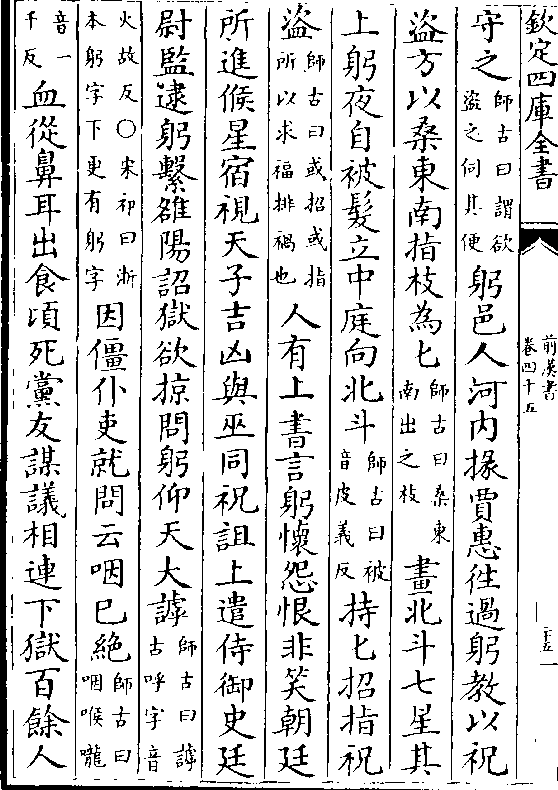 欽定四庫全書
前漢書
卷四十五
守之師古曰謂欲盜之伺其便躬邑人河内掾賈惠往過躬教以祝
盜方以桑東南指枝為匕師古曰桑東南出之枝畫北斗七星其
上躬夜自被髮立中庭向北斗師古曰被音皮義反持匕招指祝
盜師古曰或招或指所以求福排禍也人有上書言躬懷怨恨非笑朝廷
所進候星宿視天子吉凶與巫同祝詛上遣侍御史廷
尉監逮躬繫雒陽詔獄欲掠問躬仰天大謼師古曰謼古呼字音
火故反○宋祁曰浙本躬字下更有躬字因僵仆吏就問云咽已絶師古曰咽喉嚨
音一千反血從鼻耳出食頃死黨友謀議相連下獄百餘人